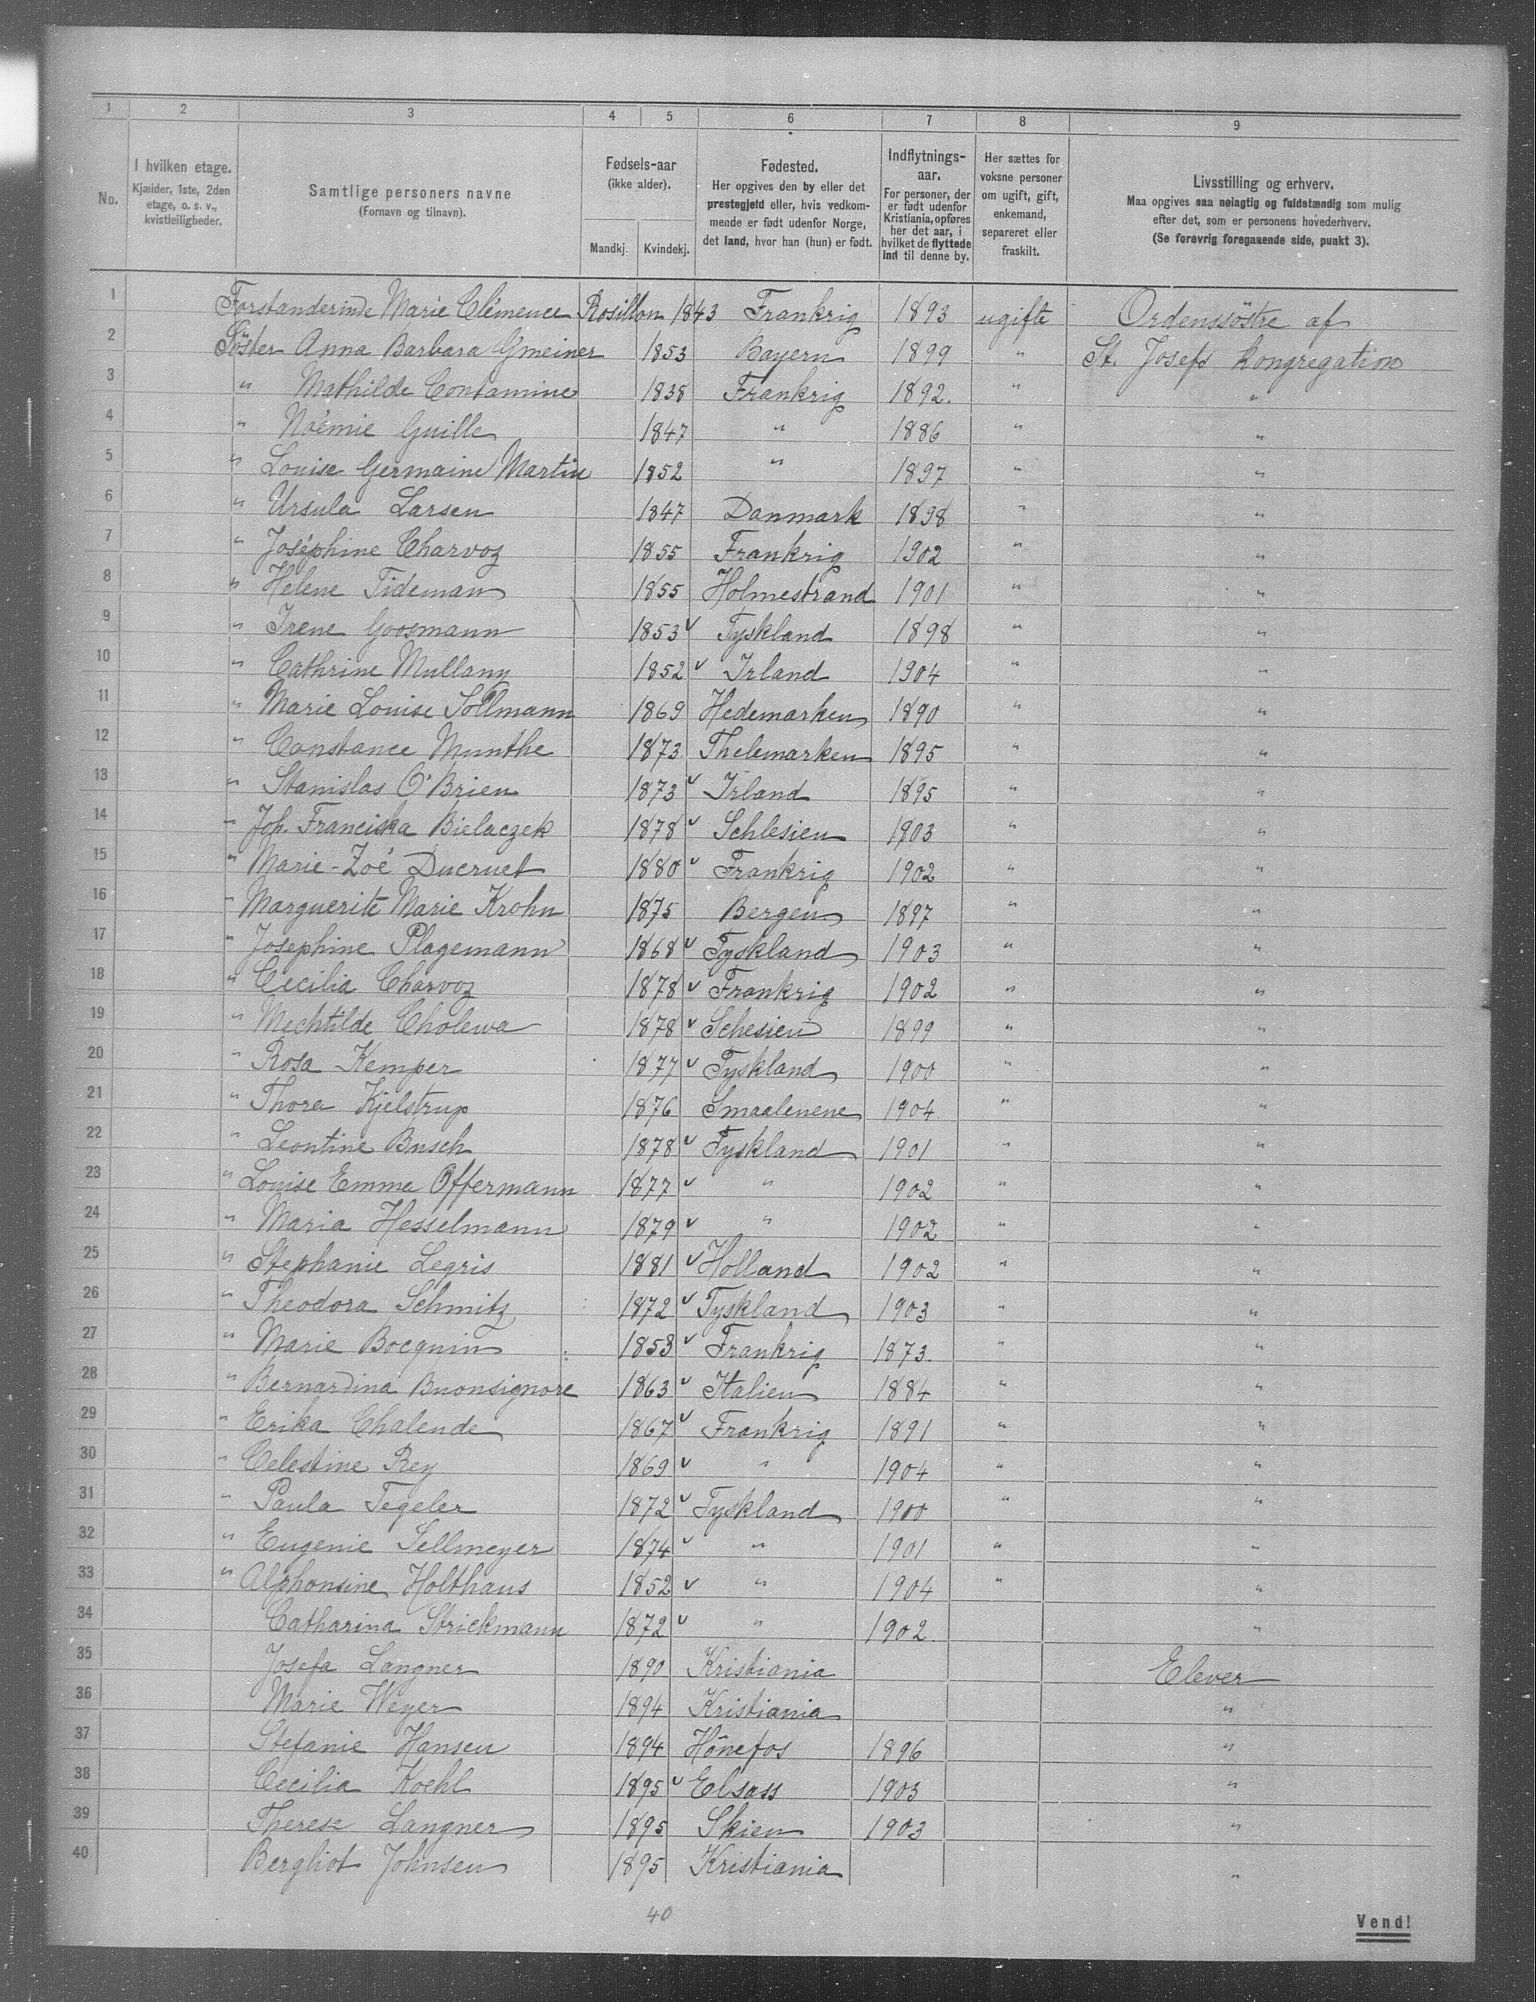 1 2 3 4 5 6 7 8 9
No.
I hvilken etage.
Kjælder, 1ste, 2den
etage, o. s. v.,
kvistleiligheder.
Samtlige personers navne
(Fornavn og tilnavn).
Fødsels-aar
(ikke alder).
Mandkj. Kvindekj.
Fødested.
Her opgives den by eller det
prestegjeld eller, hvis vedkom-
mende er født udenfor Norge,
det land, hvor han (hun) er født.
Indflytnings-
aar.
For personer, der
er født udenfor
Kristiania, opføres
her det aar, i
hvilket de flyttede
ind til denne by.
Her sættes for
voksne personer
om ugift, gift,
enkemand,
separeret eller
fraskilt.
Livsstilling og erhverv.
Maa opgives saa nøiagtig og fuldstændig som mulig
efter det, som er personens hovederhverv.
(Se forøvrig foregaaende side, punkt 3).
1 Forstanderinde Marie Clémence Rosillon 1843 Frankrig 1893 ugifte Ordenssöstre af
2 Söster Anna Barbara Gmeiner 1853 Bayern 1899 " St. Josefs kongregation
3 " Mathilde Contamine 1838 Frankrig 1892. " "
4 " Noémie Guille 1847 " 1886 " "
5 " Louise Germaine Martin 1852 " 1897 " "
6 " Ursula Larsen 1847 Danmark 1898 " "
7 " Joséphine Charvoz 1855 Frankrig 1902 " "
8 " Helene Tideman 1855 Holmestrand 1901 " "
9 " Irene Goosmann 1853 v Tyskland 1898 " "
10 " Cathrine Mullany 1852 v Irland 1904 " "
11 " Marie Louise Sollmann 1869 Hedemarken 1890 " "
12 " Constance Munthe 1873 Thelemarken 1895 " "
13 " Stanislas O'Brien 1873 v Irland 1895 " "
14 " Joh. Franciska Bielaczek 1878 v Schlesien 1903 " "
15 " Marie-Zoé Ducruet 1880 v Frankrig 1902 " "
16 " Marguerite Marie Krohn 1875 Bergen 1897 " "
17 " Josephine Plagemann 1868 v Tyskland 1903 " "
18 " Cecilia Charvoz 1878 v Frankrig 1902 " "
19 " Mechtilde Cholewa 1878 v Schesien 1899 " "
20 " Rosa Kemper 1877 v Tyskland 1900 " "
21 " Thora Kjelstrup 1876 Smaalenene 1904 " "
22 " Leontine Busch 1878 v Tyskland 1901 " "
23 " Louise Emma Offermann 1877 v " 1902 " "
24 " Maria Hesselmann 1879 v " 1902 " "
25 " Stephanie Legris 1881 v Holland 1902 " "
26 " Theodora Schmitz 1872 v Tyskland 1903 " "
27 " Marie Bocquin 1853 v Frankrig 1873. " "
28 " Bernardina Buonsignore 1863 v Italien 1884 " "
29 " Erika Chalende 1867 v Frankrig 1891 " "
30 " Celestine Rey 1869 v " 1904 " "
31 " Paula Tegeler 1872 v Tyskland 1900 " "
32 " Eugenie Sellmeyer 1874 v " 1901 " "
33 " Alphonsine Holthaus 1852 v " 1904 " "
34 Catharina Strickmann 1872 v " 1902. "
35 Josefa Langner 1890 Kristiania Elever
36 Marie Weyer 1894 Kristiania "
37 Stefanie Hansen 1894 Hönefos 1896 "
38 Cecilia Koehl 1895 v Elsass 1903 "
39 Therese Langner 1895 Skien 1903 "
40 Bergliot Johnsen 1895 Kristiania "
40
Vend!